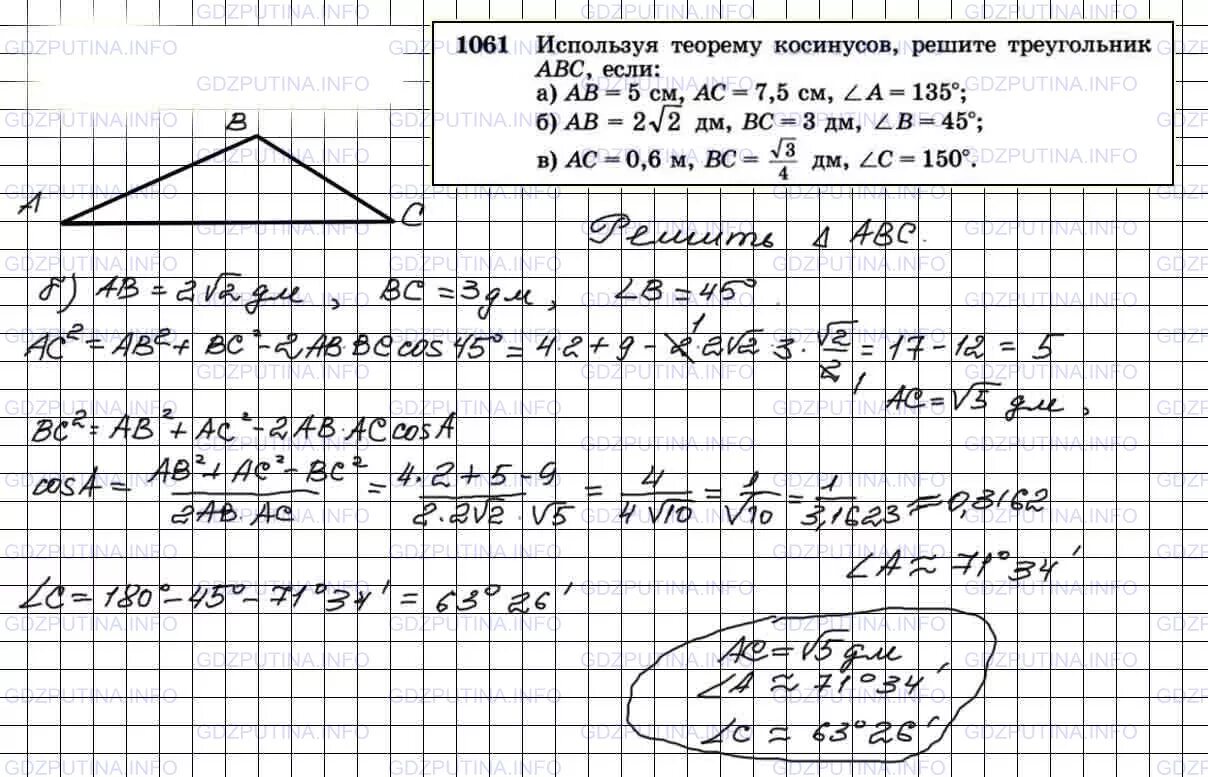 1061 Используя теорему косинусов, решите треугольник
ABC, если:
а) AB = 5 см, AC = 7,5 см, ∠A = 135°;
б) AB = 2√2 дм, BC = 3 дм, ∠B = 45°;
в) AC = 0,6 м, BC = √3/4 дм, ∠C = 150°.
B
A
C
Решить Δ ABC.
б) AB = 2√2 дм, BC = 3 дм, ∠B = 45°
AC² = AB² + BC² - 2AB·BC cos 45° = 4·2 + 9 - 2·2√2·3·√2/2 = 17 - 12 = 5
1
1
AC = √5 дм,
BC² = AB² + AC² - 2AB·AC cosA
cosA = (AB² + AC² - BC²)/(2AB·AC) = (4·2 + 5 - 9)/(2·2√2·√5) = 4/(4√10) = 1/√10 = 1/3,1623 = 0,3162
∠A ≈ 71°34'
∠C = 180° - 45° - 71°34' = 63°26'
AC = √5 дм
∠A ≈ 71°34'
∠C ≈ 63°26'
GDZPUTINA.INFO